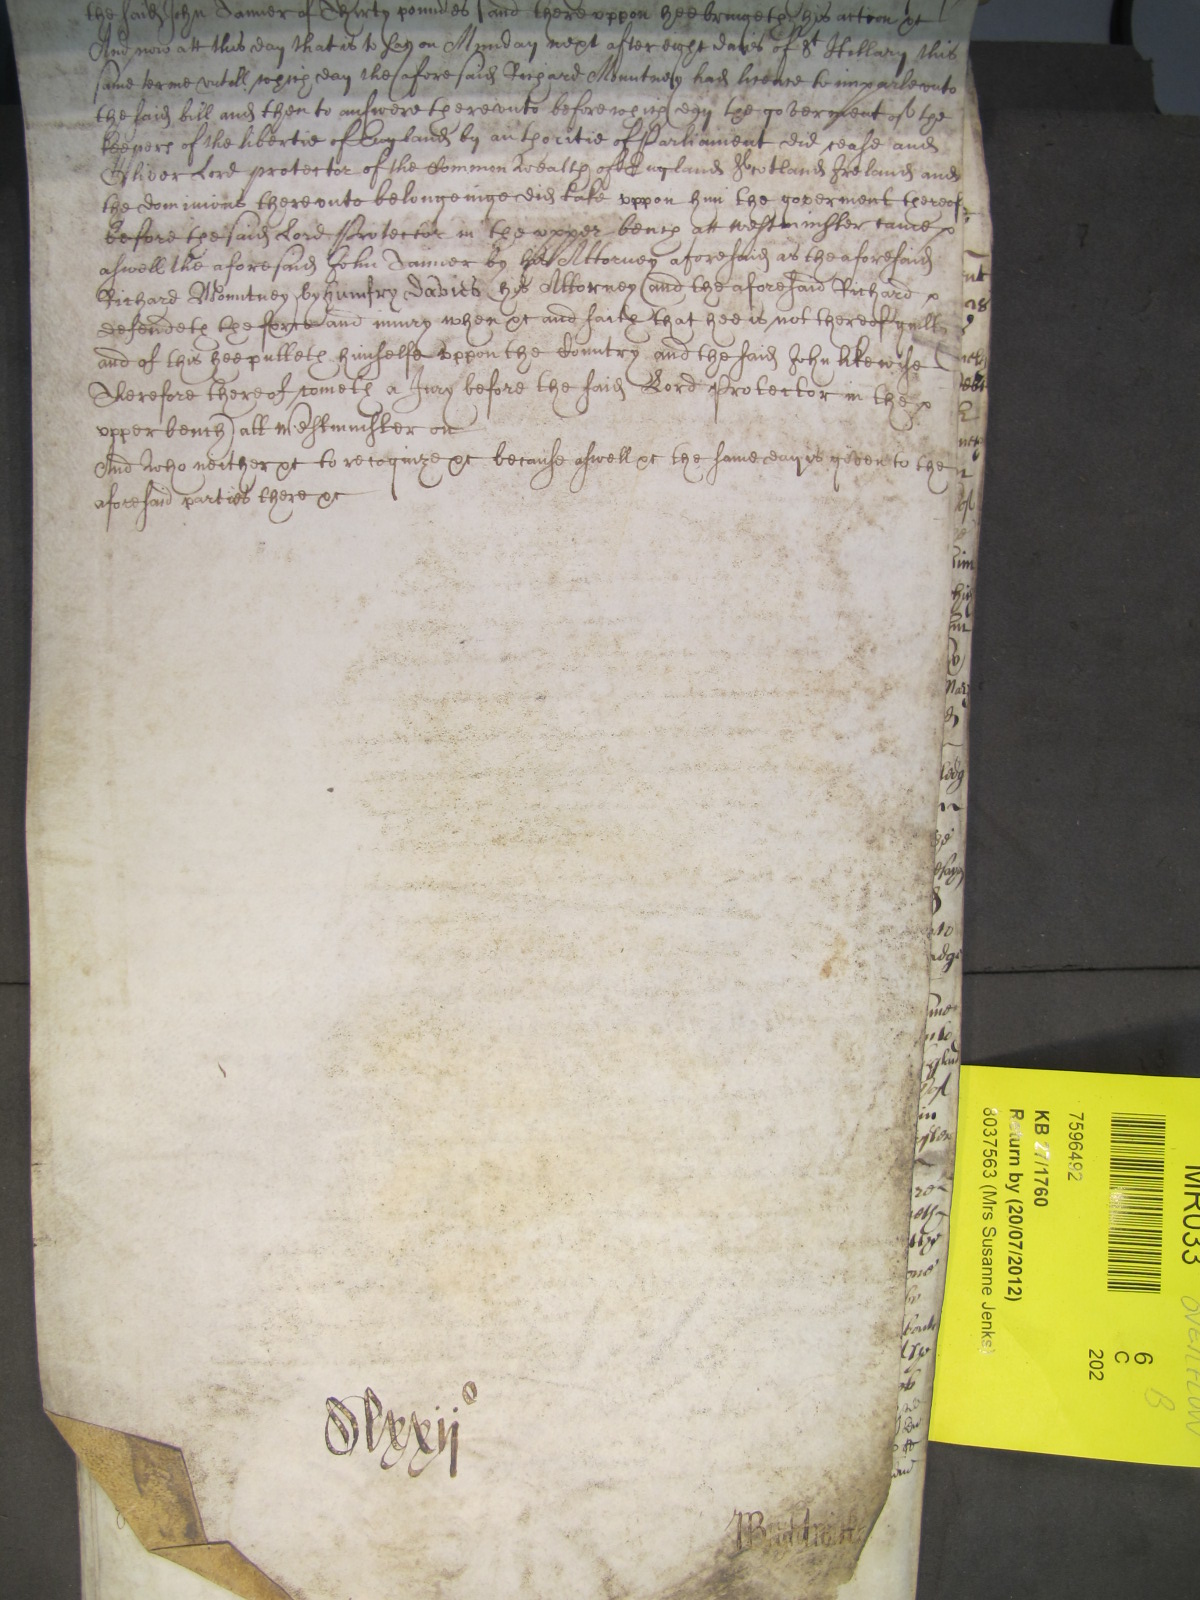 the said John Tanner of Thirty poundes and there uppon hee bringeth his action &c
And now att this day that is to say on Munday next after eight daies of St Hillary this
same terme untill which day the aforesaid Richard Mountney had licence to imparle unto
the said bill and then to answere thereunto before which day the goverment of the
keepers of the libertie of England by authoritie of Parliament did cease and
Oliver Lord protector of the Common Wealth of England Scotland Ireland and
the dominions thereunto belongeinge did take uppon him the goverment thereof
before the said Lord Protector in the upper bench att westminster came
aswell the aforesaid John Tanner by his Attorney aforesaid as the aforesaid
Richard Mountney by Humfry Davies his Attorney and the aforesaid Richard
defendeth the force and iniury when &c and saith that hee is not thereof guilty
and of this hee putteth himselfe uppon the Country and the said John likewise
Therefore thereof cometh a Jury before the said Lord Protector in the
upper bench att Westminster on
And who neither &c to recognize &c because aswell &c the same day is given to the
aforesaid parties there &c
Dlxxij o
MR033
6
C
202
7596492
KB 27/1760
Return by (20/07/2012)
8037563 (Mrs Susanne Jenks)
OVERFLOW
B